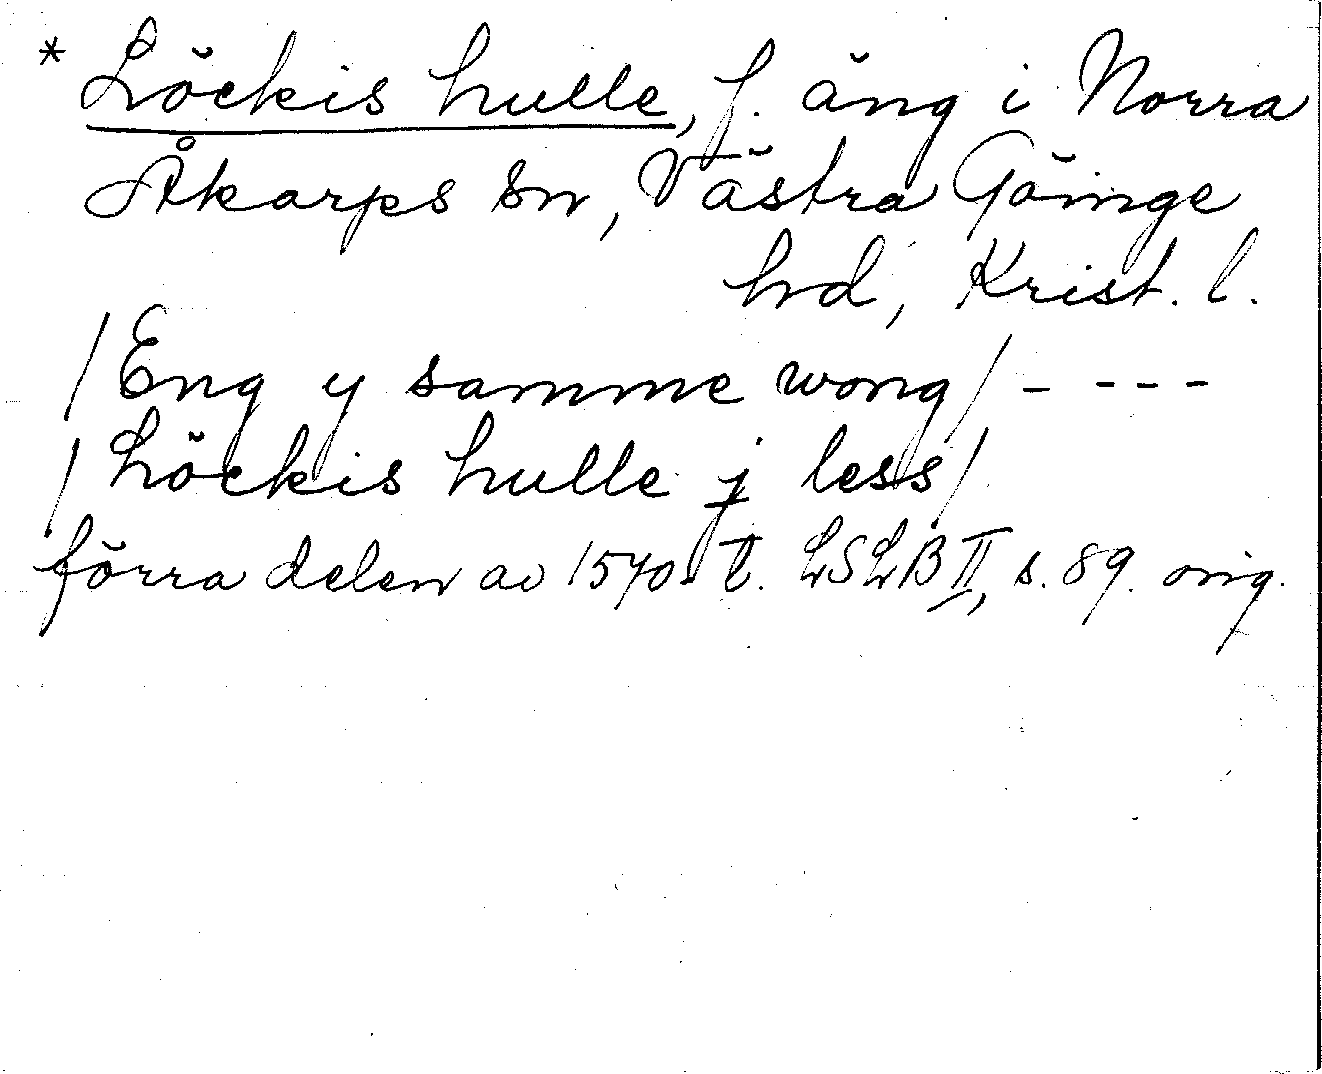 * Löckis hulle, f. äng i Norra
Åkarps sn, Västra Göinge
hd, Krist. l.
/Eng y samme wong/ - - - -
/Löckis hulle j less/
förra delen av 1570-t. LSLB II, s. 89. orig.